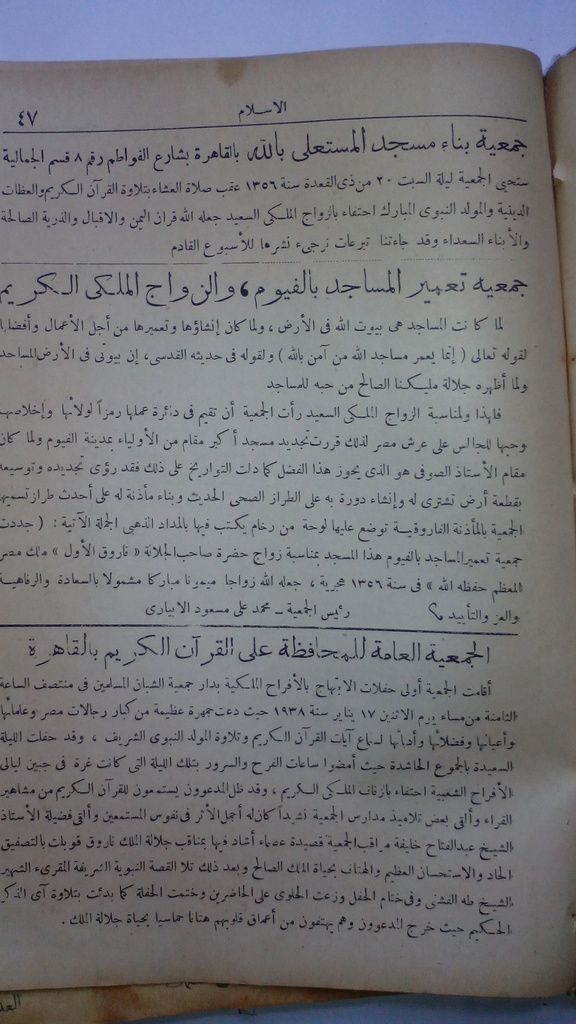 ٤٧
الاسلام
جمعية بناء مسجد المستعلى بالله بالقاهرة بشارع الفواطم رقم ٨ قسم الجمالية
ستحيى الجمعية ليلة السبت ٢٠ من ذى القعدة سنة ١٣٥٦ عقب صلاة العشاء بتلاوة القرآن الكريم والعظات
الدينية والمولد النبوى المبارك احتفاء بالزواج الملكى السعيد جعله الله قران اليمن والاقبال والذرية الصالحة
والأبناء السعداء وقد جاءتنا تبرعات نرجىء نشرها للأسبوع القادم
جمعية تعمير المساجد بالفيوم ، والزواج الملكى الكريم
لما كانت المساجد هى بيوت الله فى الأرض ، ولما كان إنشاؤها وتعميرها من أجل الأعمال وأفضلها
لقوله تعالى ( إنما يعمر مساجد الله من آمن بالله ) ولقوله فى حديثه القدسى، إن بيوتى فى الأرض المساجد
ولما أظهره جلالة مليكنا الصالح من حبه للمساجد
فلهذا ولمناسبة الزواج الملكى السعيد رأت الجمعية أن تقيم فى دائرة عملها رمزاً لولائها وإخلاصها
وحبها للجالس على عرش مصر لذلك قررت تجديد مسجد أكبر مقام من الأولياء بمدينة الفيوم ولما كان
مقام الأستاذ الصوفى هو الذى يحوز هذا الفضل كما دلت التواريخ على ذلك فقد رؤى تجديده وتوسيعه
بقطعة أرض تشترى له وإنشاء دورة به على الطراز الصحى الحديث وبناء مأذنة له على أحدث طراز تسميها
الجمعية بالمأذنة الفاروقية توضع عليها لوحة من رخام يكتب فيها بالمداد الذهبى الجملة الآتية : ( جددت
جمعية تعمير المساجد بالفيوم هذا المسجد بمناسبة زواج حضرة صاحب الجلالة « فاروق الأول » ملك مصر
المعظم حفظه الله » فى سنة ١٣٥٦ هجرية ، جعله الله زواجا ميمونا مباركا مشمولا بالسعادة والرفاهية
والعز والتأييد ؟ رئيس الجمعية ــ محمد على مسعود الابيارى
الجمعية العامة للمحافظة على القرآن الكريم بالقاهرة
أقامت الجمعية أولى حفلات الابتهاج بالأفراح الملكية بدار جمعية الشبان المسلمين فى منتصف الساعة
الثامنة من مساء يوم الاثنين ١٧ يناير سنة ١٩٣٨ حيث دعت جمهرة عظيمة من كبار رجالات مصر وعلمائها
وأعيانها وفضلائها وأدبائها لسماع آيات القرآن الكريم وتلاوة المولد النبوى الشريف ، وقد حفلت الليلة
السعيدة بالجموع الحاشدة حيث أمضوا ساعات الفرح والسرور بتلك الليلة التى كانت غرة فى جبين ليالى
الأفراح الشعبية احتفاء بالزفاف الملكى الكريم ، وقد ظل المدعوون يستمعون للقرآن الكريم من مشاهير
القراء وألقى بعض تلاميذ مدارس الجمعية نشيداً كان له أجمل الأثر فى نفوس المستمعين وألقى فضيلة الأستاذ
الشيخ عبدالفتاح خليفة مراقب الجمعية قصيدة عصماء أشاد فيها بمناقب جلالة الملك فاروق قوبلت بالتصفيق
الحاد والاستحسان العظيم والهتاف بحياة الملك الصالح وبعد ذلك تلا القصة النبوية الشريفة المقرىء الشهير
الشيخ طه الفشنى وفى ختام الحفل وزعت الحلوى على الحاضرين وختمت الحفلة كما بدئت بتلاوة آى الذكر
الحكيم حيث خرج المدعوون وهم يهتفون من أعماق قلوبهم هتافا حماسيا بحياة جلالة الملك .